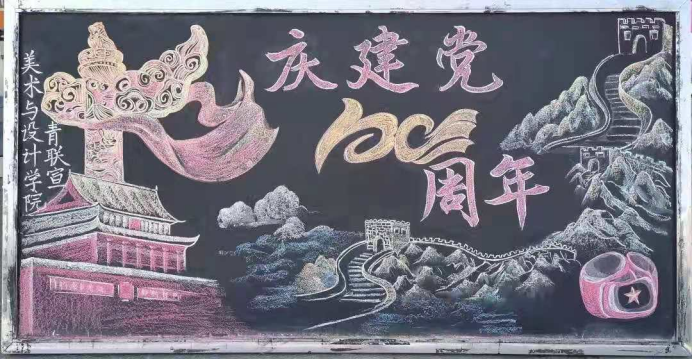 美术与设计学院
青联宣
庆建党
100
周年